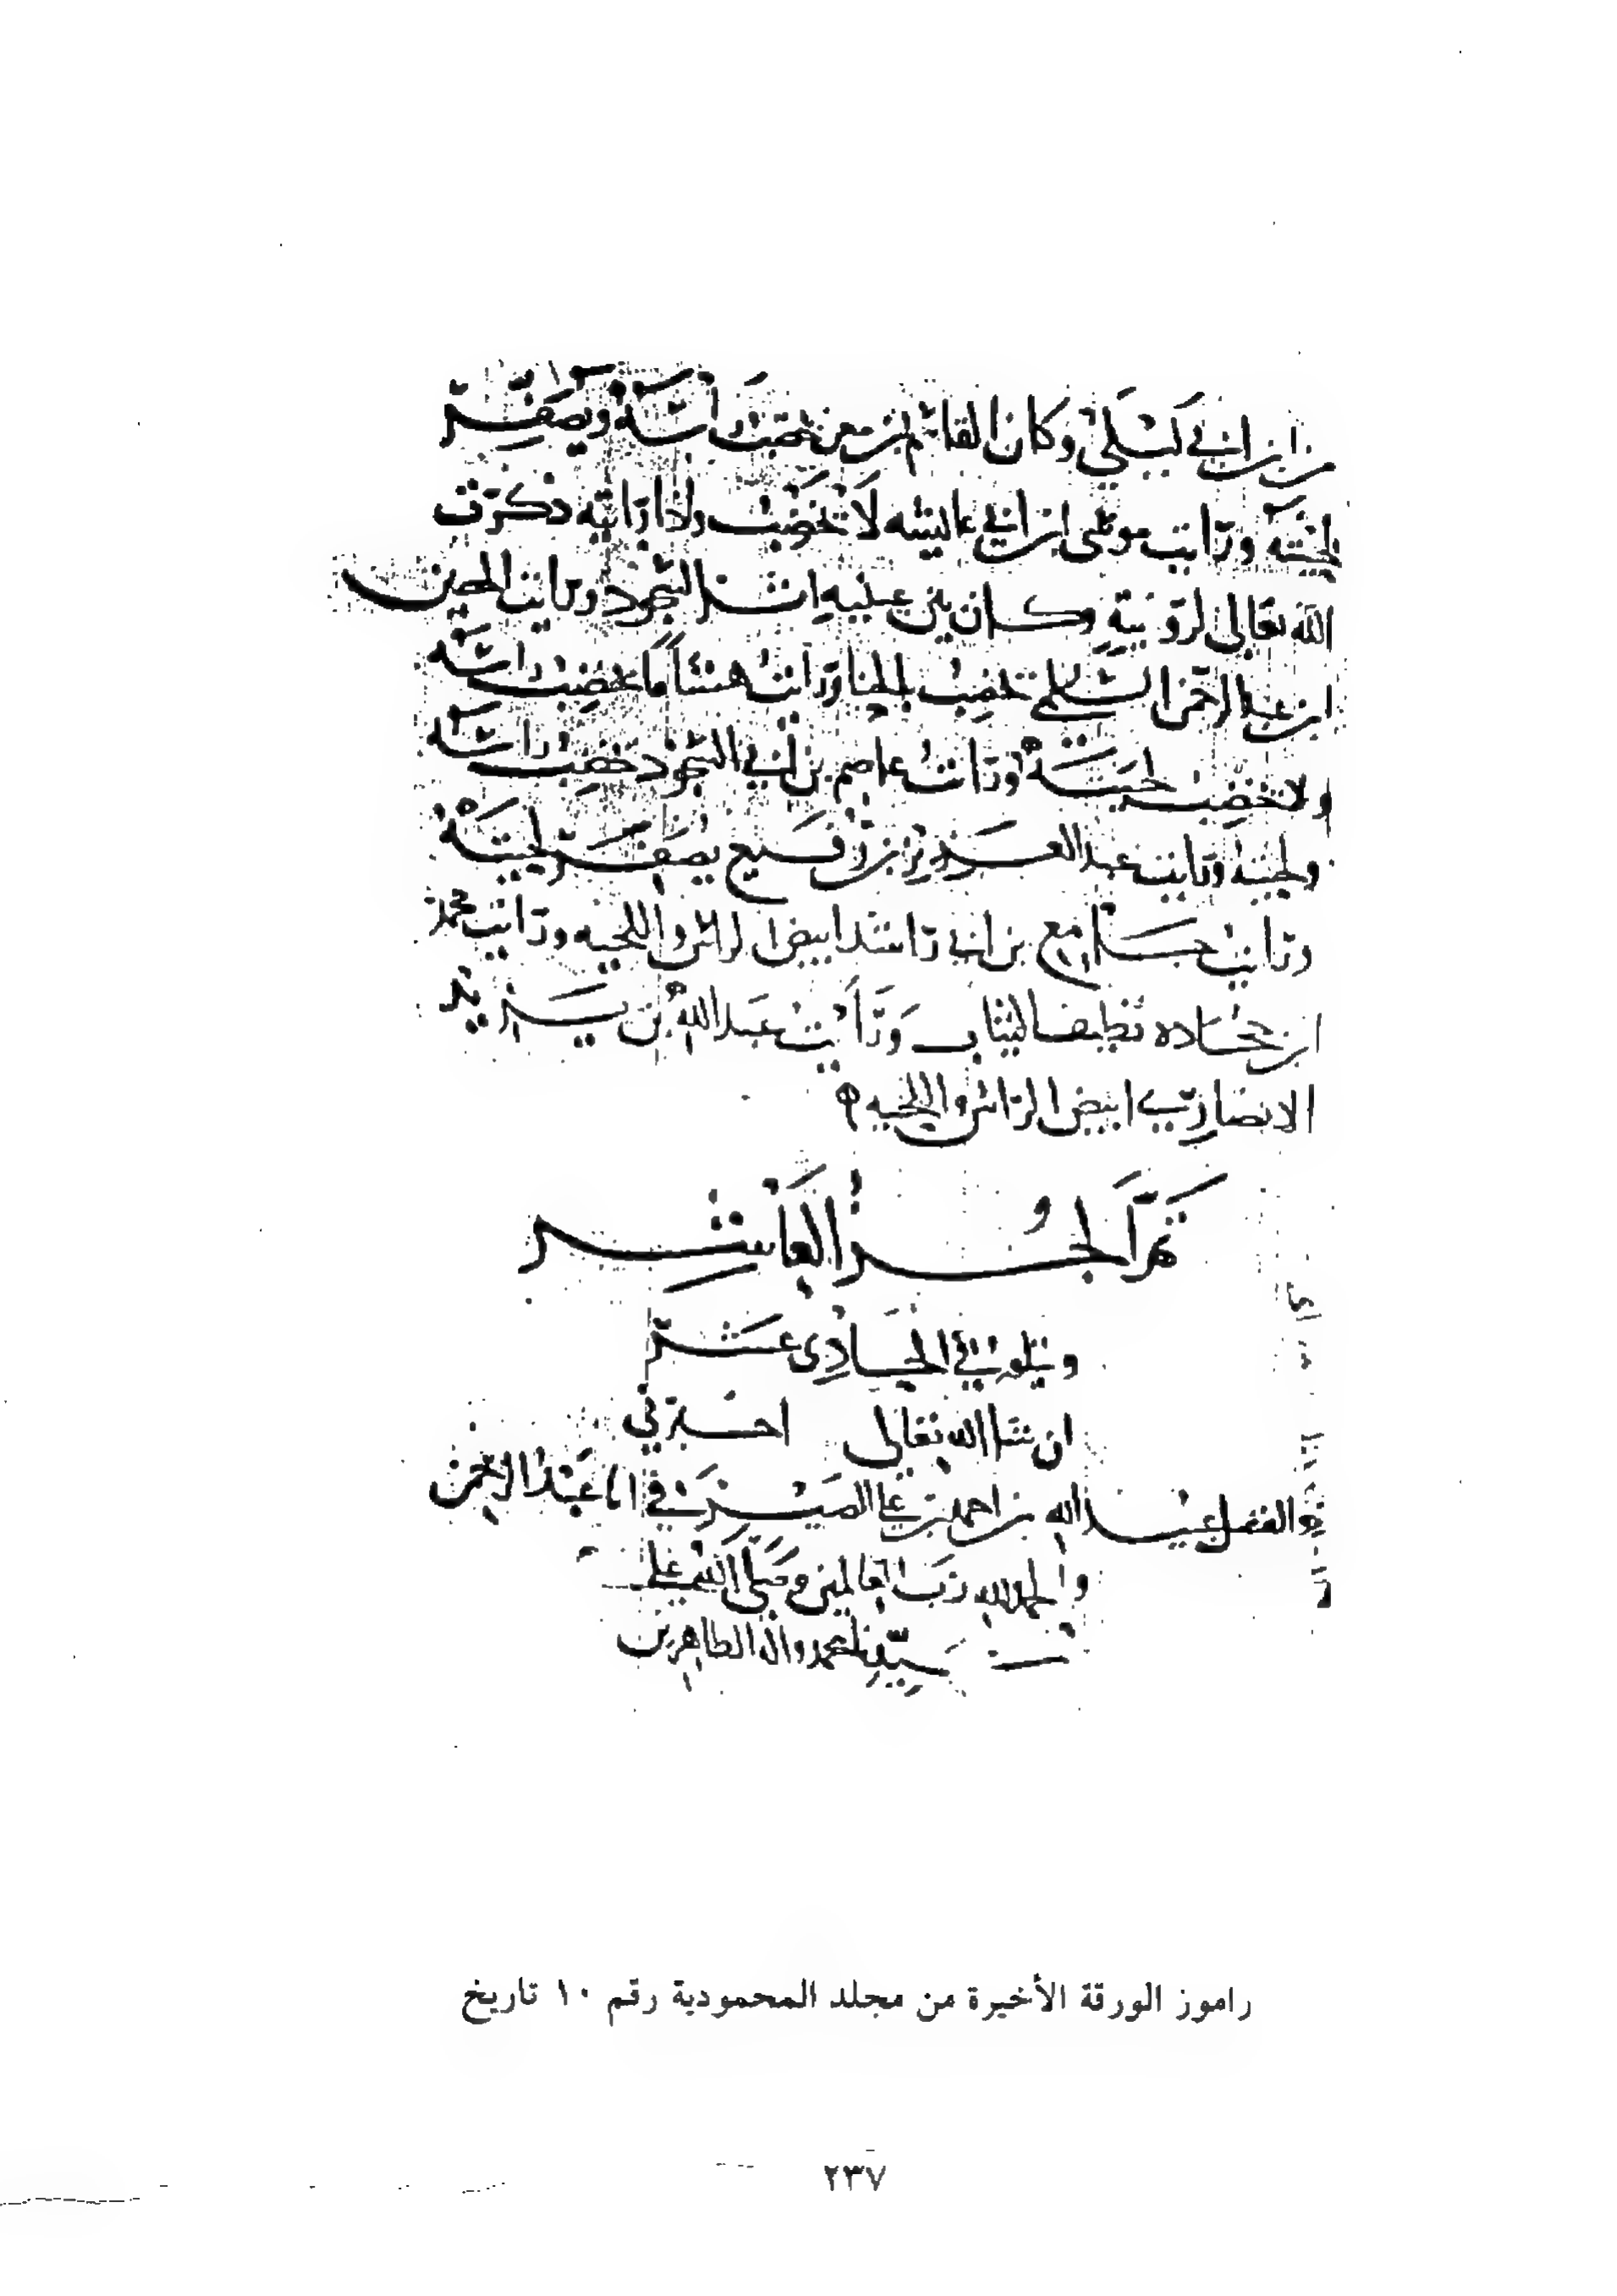 من ابن ابي ليلى وكان القاسم بن معن يخضب راسه ويصفر
لحيته ورايت موسى ابن ابي عايشه لا يخضب واذا رايته ذكرت
الله تعالى لرؤيته وكان بين عينيه اثر السجود ورايت الحصين
ابن عبد الرحمن السلمي يخضب بالحنا ورايت هشاما يخضب راسه
ولا يخضب لحيته ورايت عاصم بن ابي النجود يخضب راسه
ولحيته ورايت عبد العزيز بن رفيع يصفر لحيته
ورايت جامع بن ابي راشد ابيض الراس واللحيه ورايت محمد
ابن جحاده نظيف الثياب ورايت عبد الله بن يزيد
الانصاري ابيض الراس واللحيه
تم الجزء العاشر
ويتلوه في الحادي عشر
ان شا الله تعالى اخبرني
ابو الفضل عبيد الله بن احمد بن علي الصيرفي انا عبد الرحمن
والحمد لله رب العالمين وصلى الله على
سيدنا محمد واله الطاهرين
راموز الورقة الأخيرة من مجلد المحمودية رقم ١٠ تاريخ
٢٣٧